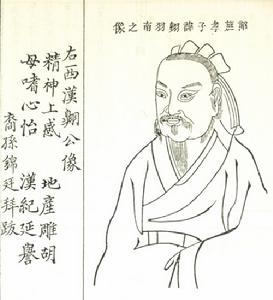 孝子諱翱羽南之像
右西漢翱公像
精神上感 地產雕胡
母嗜心怡 漢紀延譽
裔孫錦廷拜跋